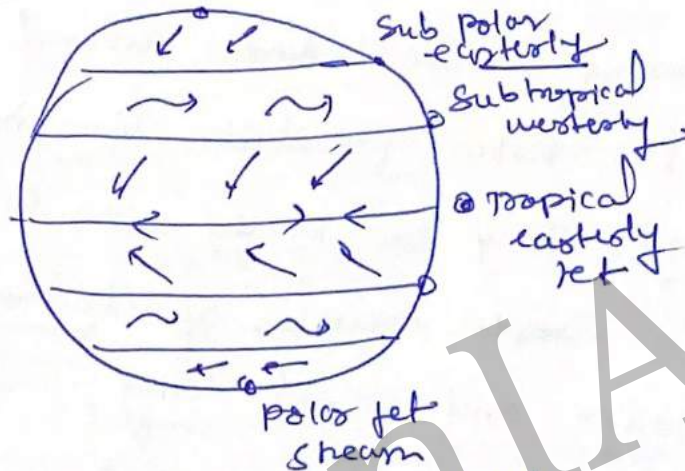 Sub polar
easterly
Subtropical
westerly
Tropical
easterly
jet
polar jet
stream
nIA